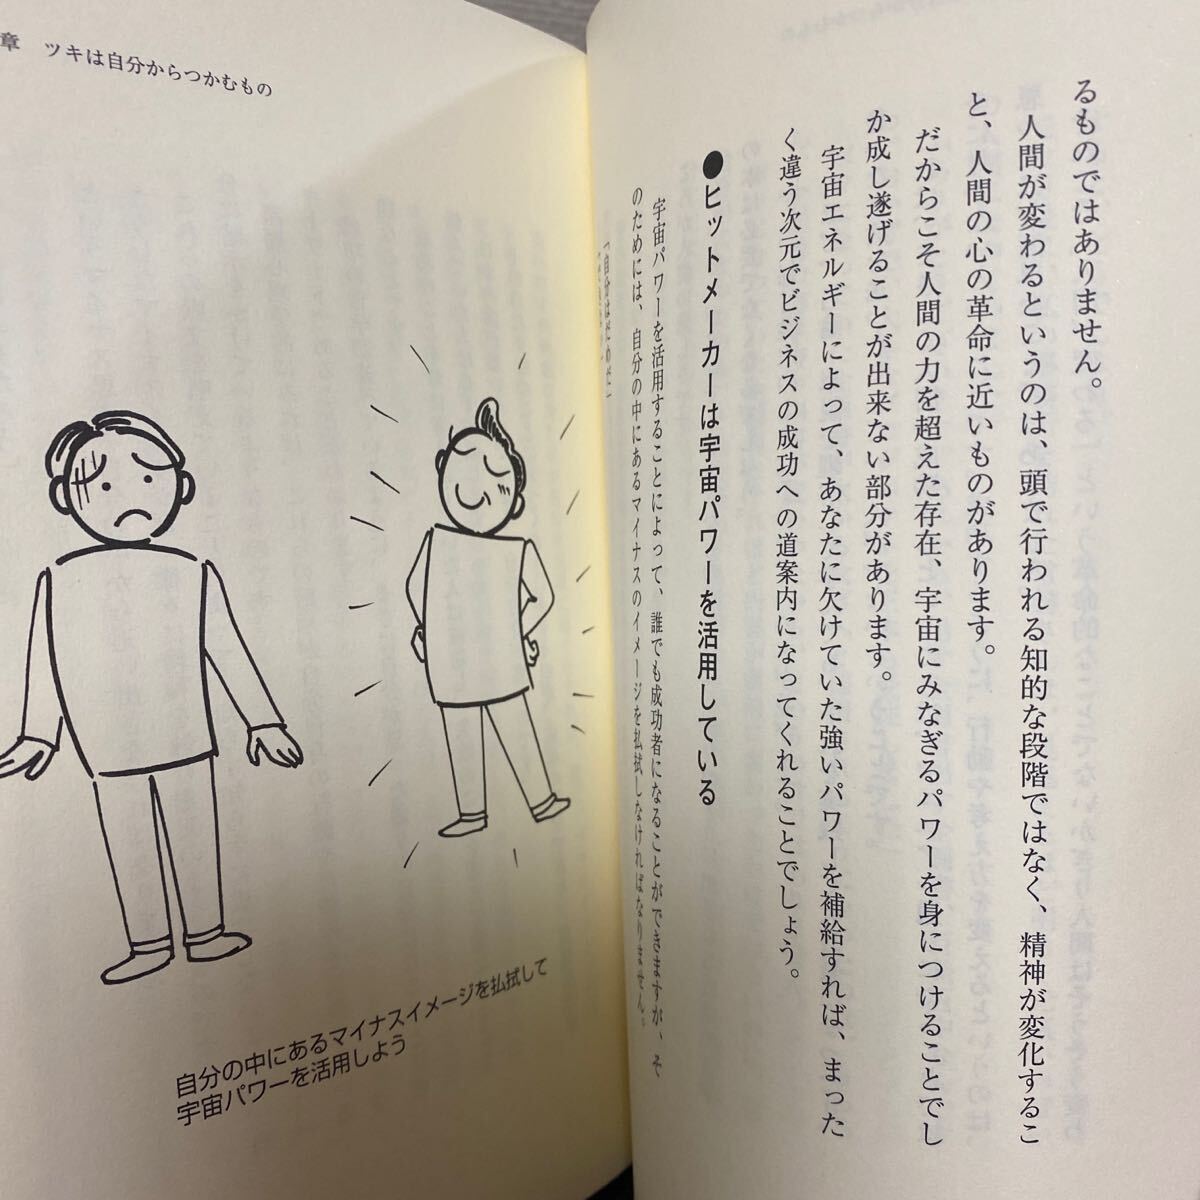 るものではありません。
人間が変わるというのは、頭で行われる知的な段階ではなく、精神が変化するこ
と、人間の心の革命に近いものがあります。
だからこそ人間の力を超えた存在、宇宙にみなぎるパワーを身につけることでし
か成し遂げることが出来ない部分があります。
宇宙エネルギーによって、あなたに欠けていた強いパワーを補給すれば、まった
く違う次元でビジネスの成功への道案内になってくれることでしょう。
●ヒットメーカーは宇宙パワーを活用している
宇宙パワーを活用することによって、誰でも成功者になることができますが、そ
のためには、自分の中にあるマイナスのイメージを払拭しなければなりません。
「自分はだめだ」
章 ツキは自分からつかむもの
自分の中にあるマイナスイメージを払拭して
宇宙パワーを活用しよう